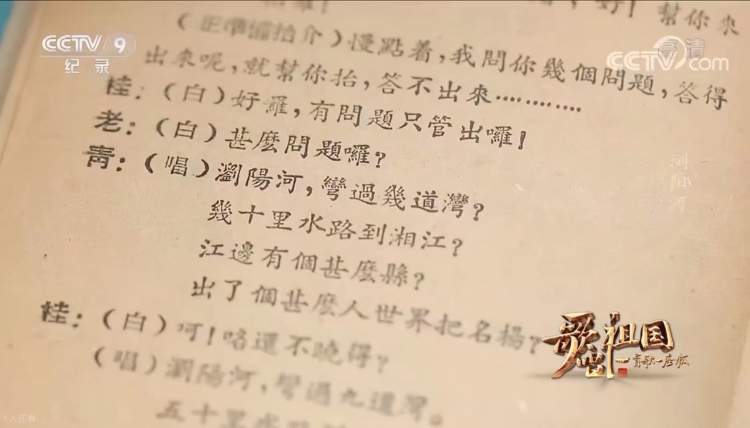 囉！
好！幫你來
（正準備抬介）慢點着，我問你幾個問題，答得
出來呢，就幫你抬，答不出來…………
桂：（白）好囉，有問題只管出囉！
老：（白）甚麽問題囉？
青：（唱）瀏陽河，彎過幾道灣？
幾十里水路到湘江？
江邊有個甚麽縣？
出了個甚麽人世界把名楊？
桂：（白）呵！咯還不曉得？
（唱）瀏陽河，彎過九道灣。
五十里水路
CCTV 9
纪录
高清
CCTV.com
浏阳河
歌出祖国